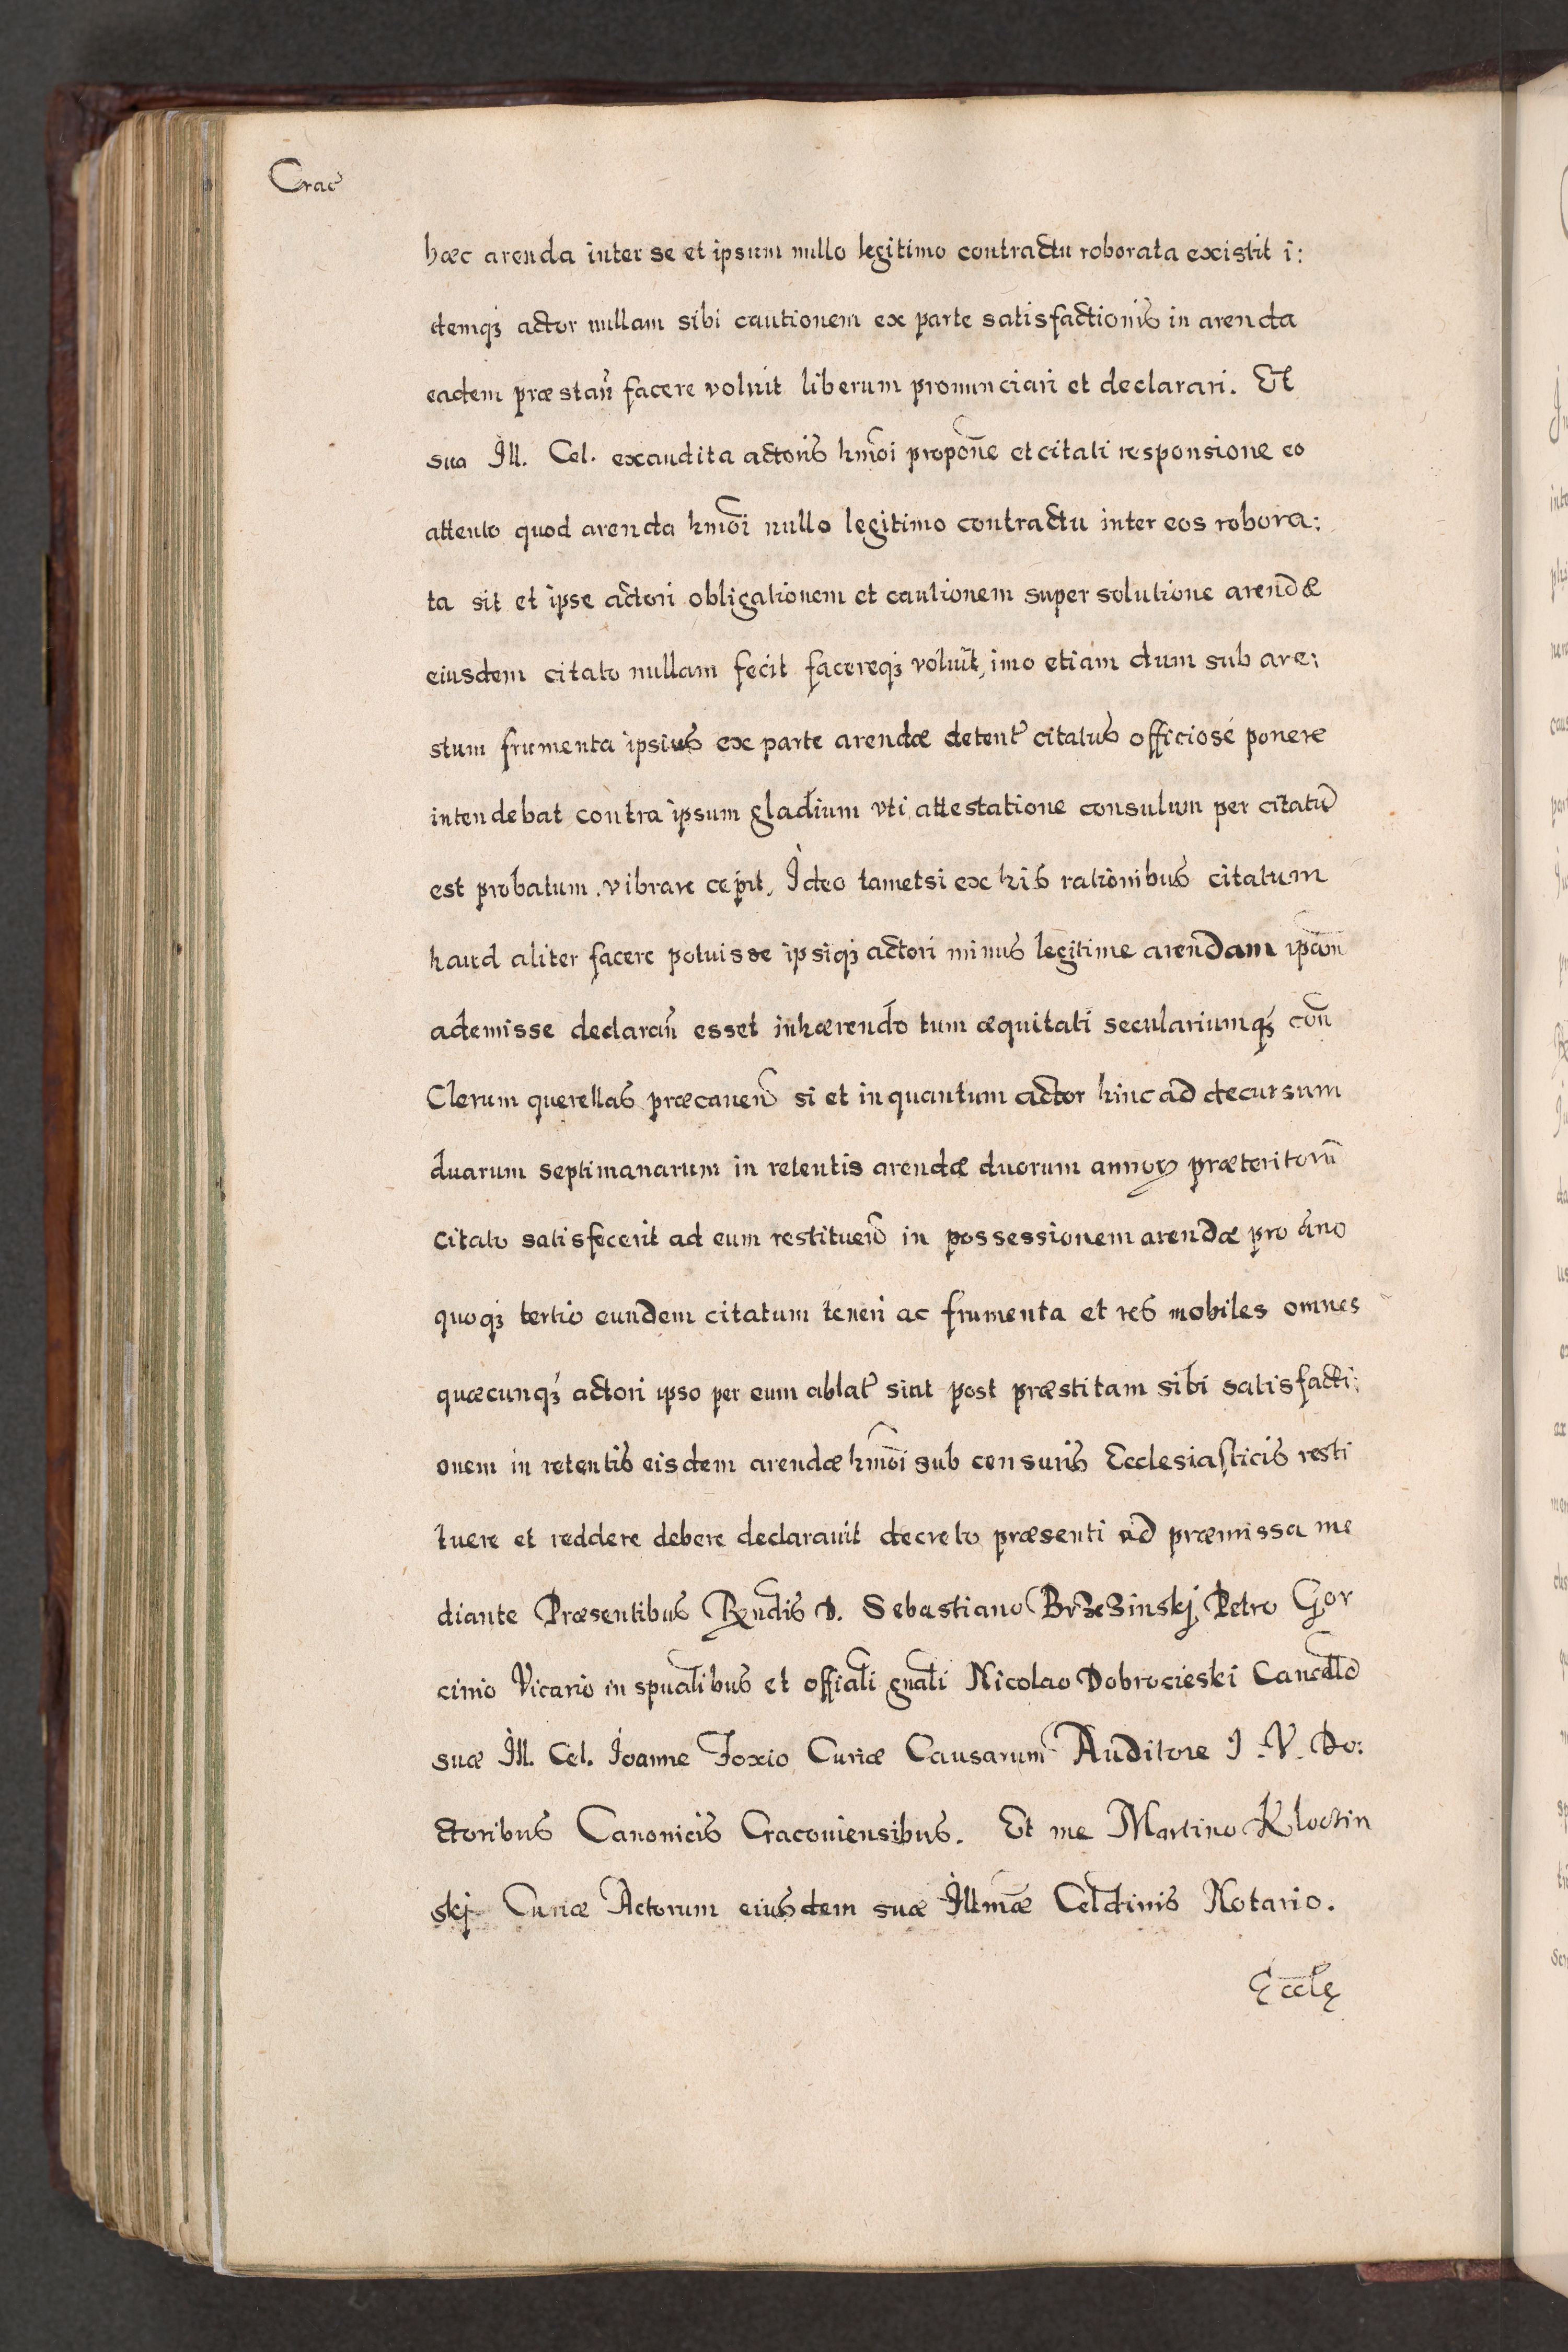 Crac̃
hæc arenda inter se et ipsum nullo legitimo contractu roborata existit i:
demqꝫ actor nullam sibi cautionem ex parte satisfactionis in arenda
eadem præstañ facere voluit liberum pronunciari et declarari. Et
sua Ill. Cel. exaudita actoris hmõi propoñe et citati responsione eo
attento quod arenda hmõi nullo legitimo contractu inter eos robora:
ta sit et ipse actori obligationem et cautionem super solutione arendæ
eiusdem citato nullam fecit facereqꝫ voluit, imo etiam dum sub are:
stum frumenta ipsius ex parte arendæ detent̃ citatus officiosé ponere
intendebat contra ipsum gladium vti attestatione consulum per citatũ
est probatum vibrare cepit, Ideo tametsi ex his rationibus citatum
haud aliter facere potuisse ipsiqꝫ actori minus legitime arendam ipam̃
ademisse declarañ esset inhærendo tum æquitati seculariumqꝫ coñ
Clerum querellas præcaueñ si et inquantum actor hinc ad decursum
duarum septimanarum in retentis arendæ duorum annoꝝ præteritorũ
citato satisfecerit ad eum restitueñ in possessionem arendæ pro ãno
quoqꝫ tertio eundem citatum teneri ac frumenta et res mobiles omnes
quæcunqꝫ actori ipso per eum ablat̃ sint post præstitam sibi satisfacti:
onem in retentis eisdem arendæ hmõi sub censuris Ecclesiasticis resti
tuere et reddere debere declarauit decreto præsenti ad præmissa me
diante Præsentibus Rñdis D. Sebastiano Brzezinskj Petro Gor
cinio Vicario in spualibus et offiali gnali Nicolao Dobrocieski Cancell̃o
suæ Ill. Cel. Ioanne Foxio Curiæ Causarum Auditore I. V. Do:
ctoribus Canonicis Cracouiensibus. Et me Martino Kloczin
skj Curiæ Actorum eiusdem suæ Illmæ Celdinis Notario.
Eccl̃ę